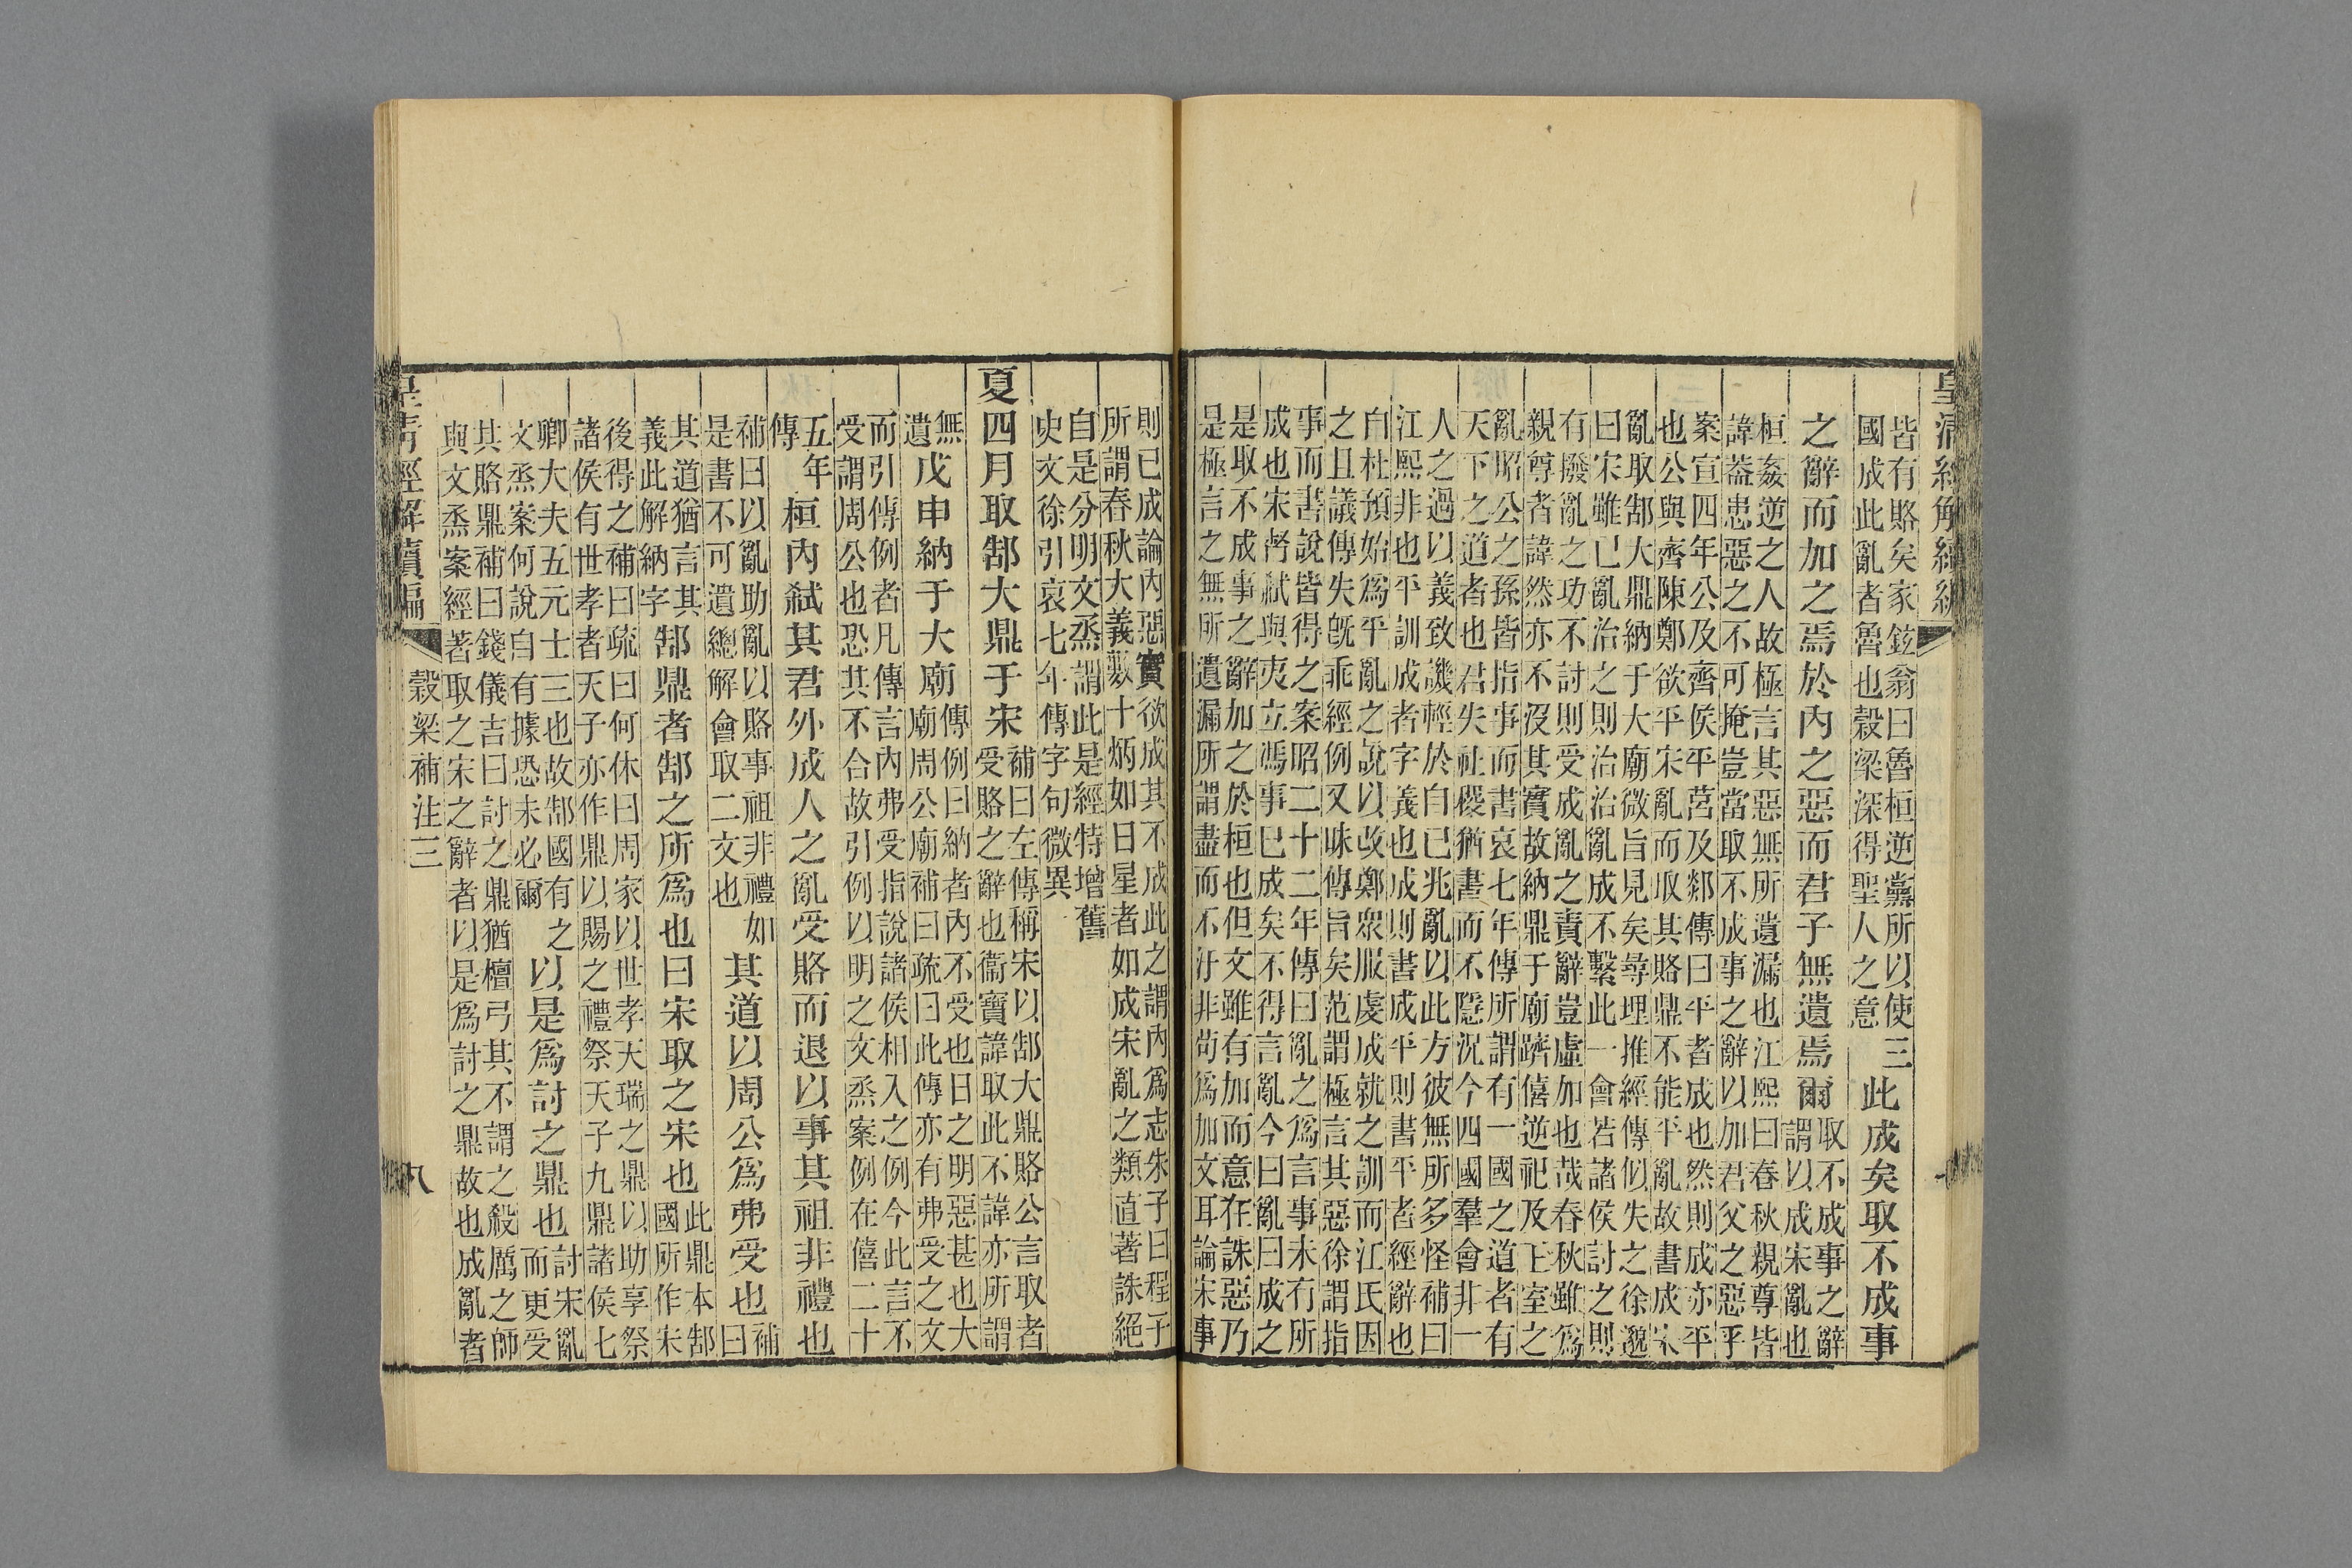 皇清經解續編
皆有賂矣家鉉翁曰魯桓逆黨所以使三
國成此亂者魯也穀梁深得聖人之意
此成矣取不成事
之辭而加之焉於內之惡而君子無遺焉爾
取不成事之辭
謂以成宋亂也
桓姦逆之人故極言其惡無所遺漏也江熙曰春秋親尊皆
諱葢患惡之不可掩豈當取不成事之辭以加君父之惡乎
案宣四年公及齊侯平莒及郯傳曰平者成也然則成亦平
也公與齊陳鄭欲平宋亂而取其賂鼎不能平亂故書成宋
亂取郜大鼎納于大廟微旨見矣尋理推經傳似失之徐邈
曰宋雖已亂治之則治治亂成不繫此一會若諸侯討之則
有撥亂之功不討則受成亂之責辭豈虛加也哉春秋雖爲
親尊者諱然亦不沒其實故納鼎于廟躋僖逆祀及王室之
亂昭公之孫皆指事而書哀七年傳所謂有一國之道者有
天下之道者也君失社稷猶書而不隱況今四國羣會非一
人之過以義致譏輕於自已兆亂以此方彼無所多怪補曰
江熙非也平訓成成者字義也成則書成平則書平者經辭也
自杜預始爲平亂之說以攻鄭眾服虔成就之訓而江氏因
之且議傳失旣乖經例又昧傳旨矣范謂極言其惡徐謂指
事而書說皆得之案昭二十二年傳曰亂之爲言事未有所
成也宋督弒與夷立馮事已成矣不得言亂今曰亂曰成之
是取不成事之辭加之於桓也但文雖有加而意在誅惡乃
是極言之無所遺漏所謂盡而不汙非苟爲加文耳論宋事
則已成論內惡實欲成其不成此之謂內爲志朱子曰程子
所謂春秋大義數十炳如日星者如成宋亂之類直著誅絕
自是分明文烝謂此是經特增舊
史文徐引哀七年傳字句微異
夏四月取郜大鼎于宋
補曰左傳稱宋以郜大鼎賂公言取者
受賂之辭也衞寶諱取此不諱亦所謂
無
遺
戊申納于大廟
傳例曰納者內不受也日之明惡甚也大
廟周公廟補曰疏曰此傳亦有弗受之文
而引傳例者凡傳言內弗受指說諸侯相入之例今此言不
受謂周公也恐其不合故引例以明之文烝案例在僖二十
五年
傳
桓內弒其君外成人之亂受賂而退以事其祖非禮也
補曰以亂助亂以賂事祖非禮如
是書不可遺總解會取二文也
其道以周公爲弗受也
補
曰
其道猶言其
義此解納字
郜鼎者郜之所爲也曰宋取之宋也
此鼎本郜
國所作宋
後得之補曰疏曰何休曰周家以世孝天瑞之鼎以助享祭
諸侯有世孝者天子亦作鼎以賜之禮祭天子九鼎諸侯七
卿大夫五元士三也故郜國有之
文烝案何說自有據恐未必爾
以是爲討之鼎也
討宋亂
而更受
其賂鼎補曰錢儀吉曰討之鼎猶檀弓其不謂之殺厲之師
與文烝案經著取之宋之辭者以是爲討之鼎故也成亂者
皇清經解續編
穀梁補注三
八